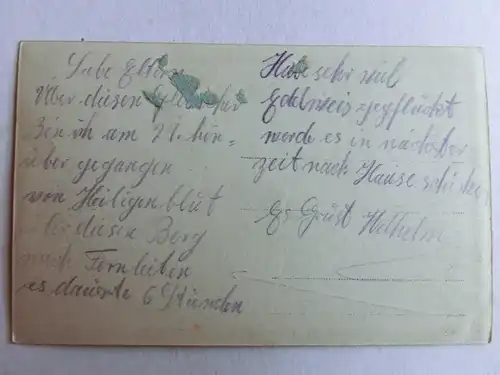 Liebe Eltern
Über diesen Gletscher
Bin ich am 21. hin=
über gegangen
von Heiligenblut
über diesen Berg
nach Fernleiten
es dauerte 6 Stunden
Habe sehr viel
Edelweis gepflückt
werde es in nächster
zeit nach Hause schicken
Es Grüst Wilhelm